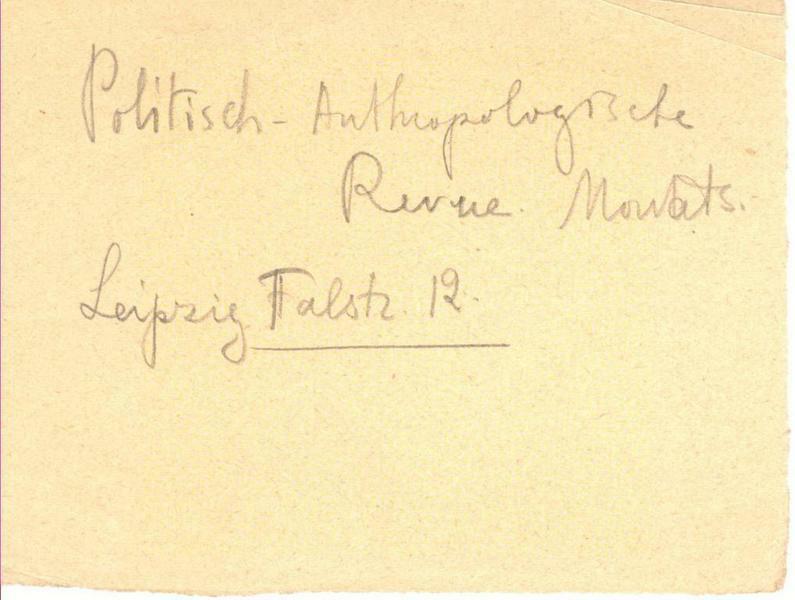 Politisch - Anthropologische
Revue. Monats.
Leipzig Talstr. 12.